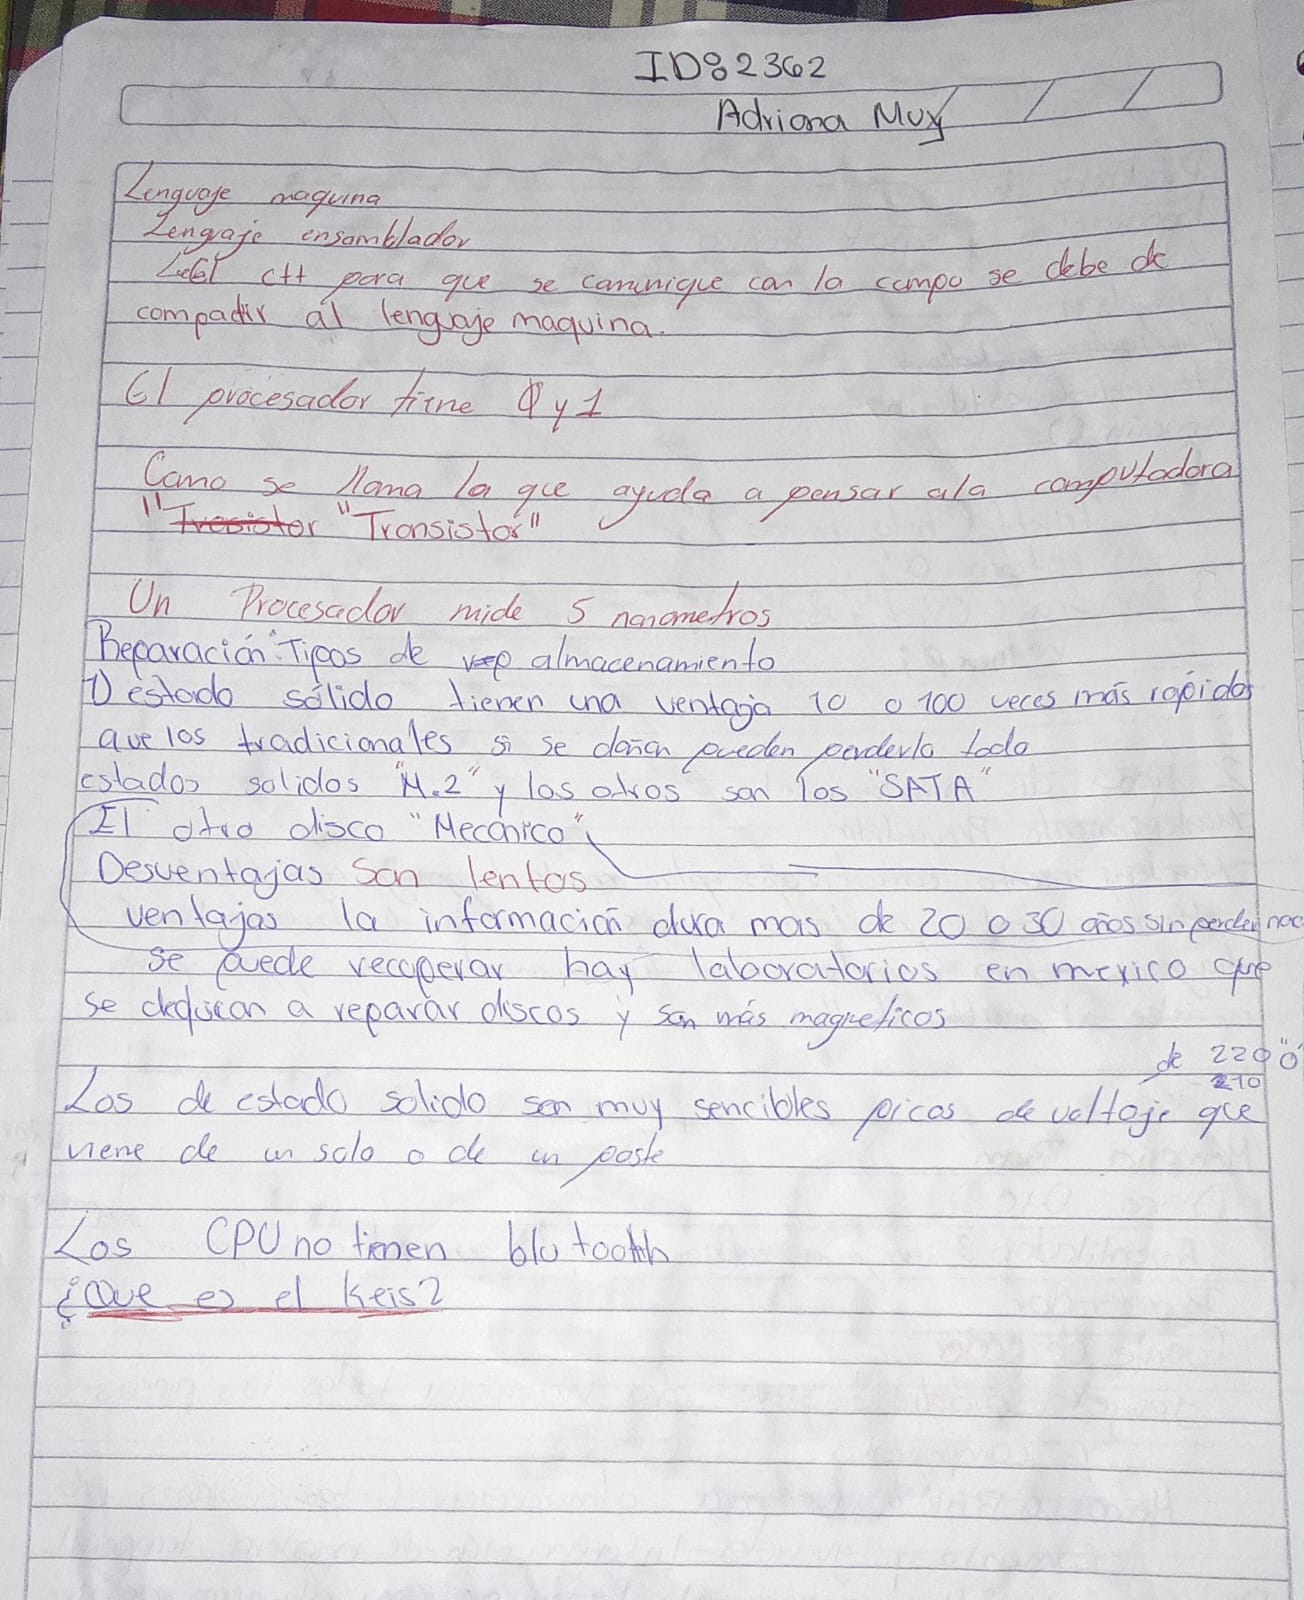 ID: 2362
Adriana Muy
Lenguaje maquina
Lenguaje ensamblador
C++ para que se comunique con la compu se debe de
compadir al lenguaje maquina.
El procesador tiene 0 y 1
Como se llama la que ayuda a pensar ala computadora
"Tresistor "Transistor"
Un Procesador mide 5 nanometros
Reparación: Tipos de almacenamiento
1) estado sólido tienen una ventaja 10 o 100 veces más rapidos
que los tradicionales si se dañan pueden perderlo todo
estados solidos "M.2" y los otros son los "SATA"
El otro disco "Mecanico"
Desventajas son lentos
ventajas la información dura mas de 20 o 30 años sin perder nada
se puede recuperar hay laboratorios en mexico que
se dedican a reparar discos y son más magneticos
de 220 "o"
210
Los de estado solido son muy sencibles picos de voltaje que
viene de un solo o de un poste
Los CPU no tienen blutooth
¿Que es el Keis?